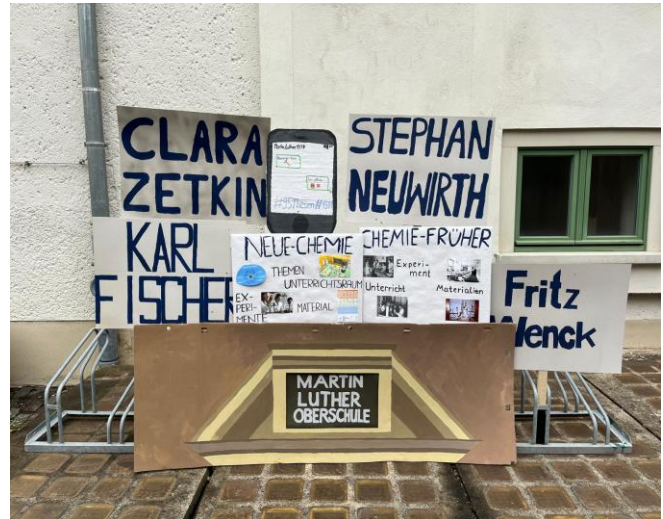 CLARA
ZETKIN
STEPHAN
NEUWIRTH
KARL
FISCHER
NEUE-CHEMIE
THEMEN
UNTERRICHTSRAUM
EX-
PERI-
MENTE
MATERIAL
CHEMIE-FRÜHER
Experi-
ment
Unterricht
Materialien
Fritz
Wenck
MARTIN
LUTHER
OBERSCHULE